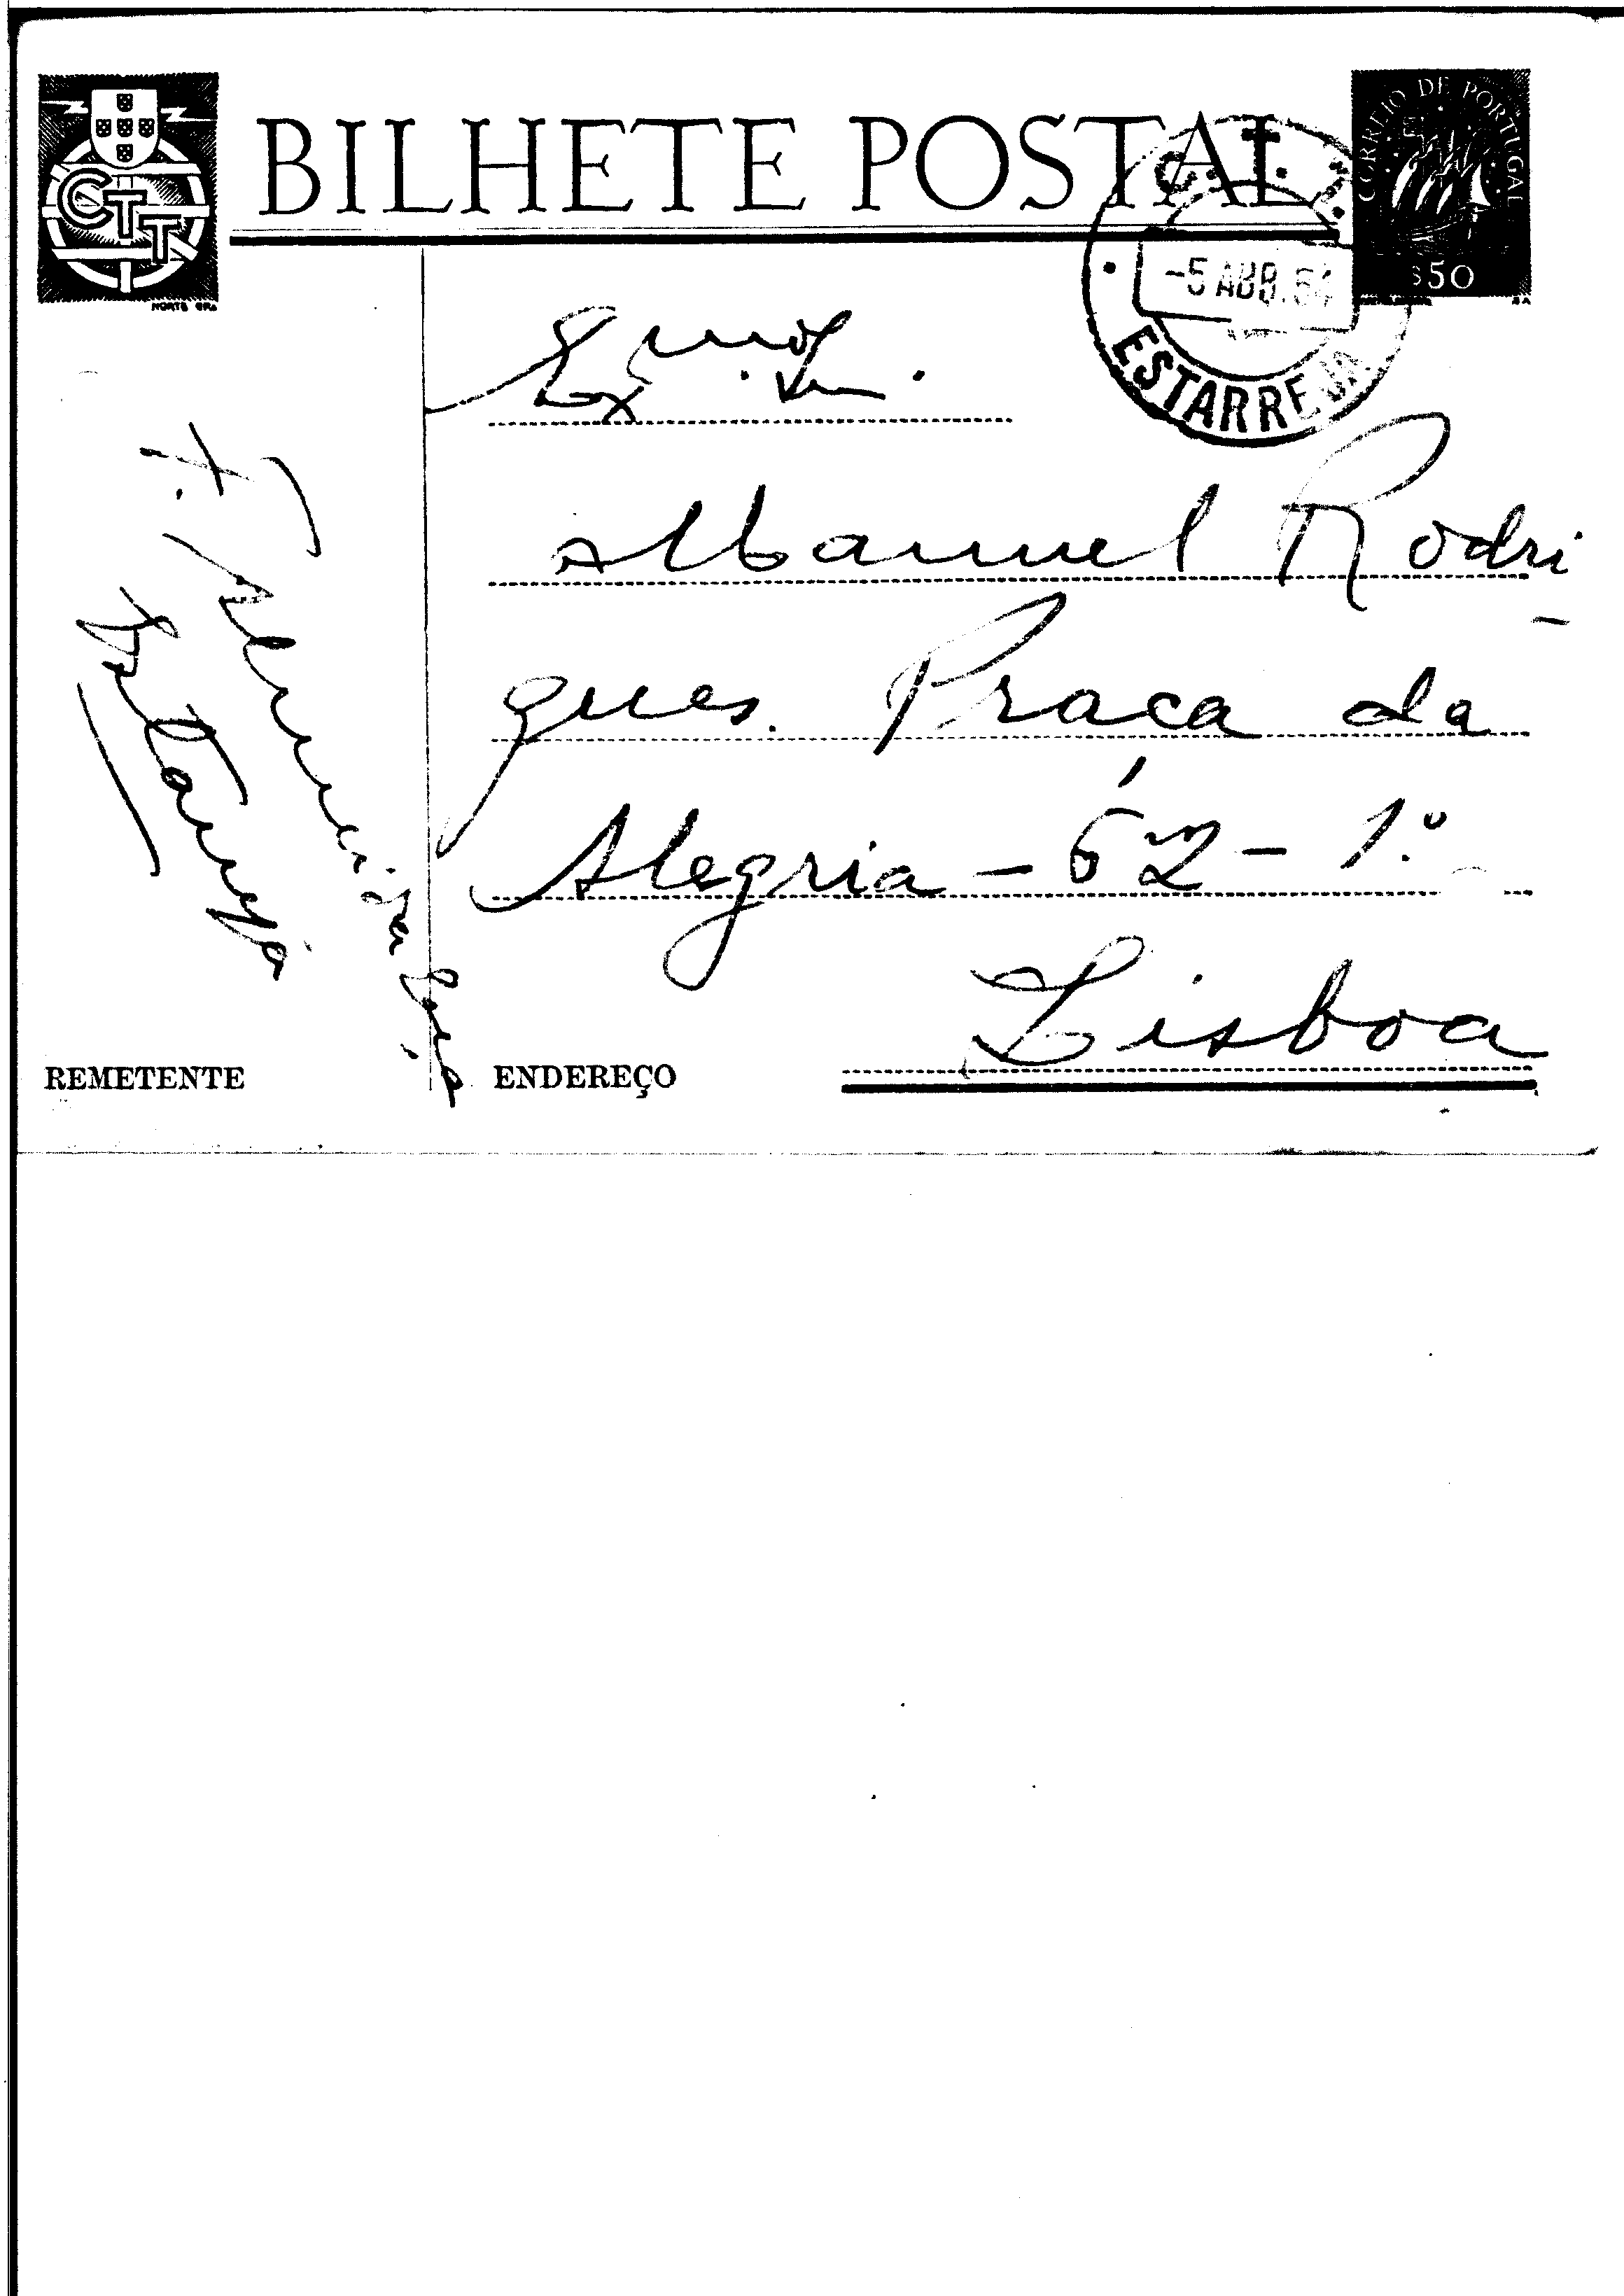 CTT
BILHETE POSTAL
CORREIO DE PORTUGAL
$50
C.T.T.
-5 ABR. 54
ESTARREJA
Exmo. Sr.
Manuel Rodri-
gues. Praça da
Alegria - 62 - 1.º
Lisboa
F.
Estarreja
REMETENTE
ENDEREÇO